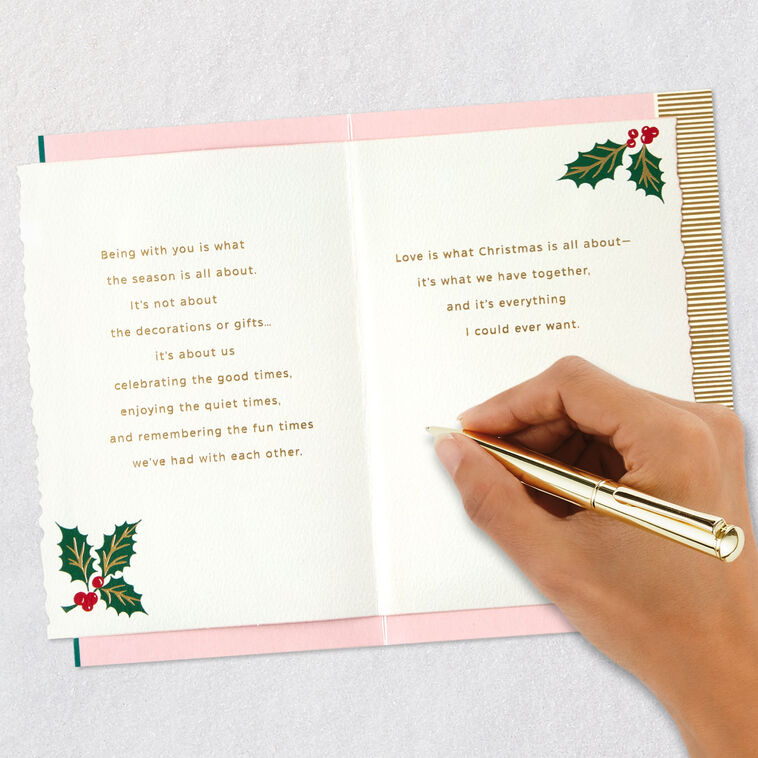 Being with you is what
the season is all about.
It's not about
the decorations or gifts...
it's about us
celebrating the good times,
enjoying the quiet times,
and remembering the fun times
we've had with each other.
Love is what Christmas is all about—
it's what we have together,
and it's everything
I could ever want.